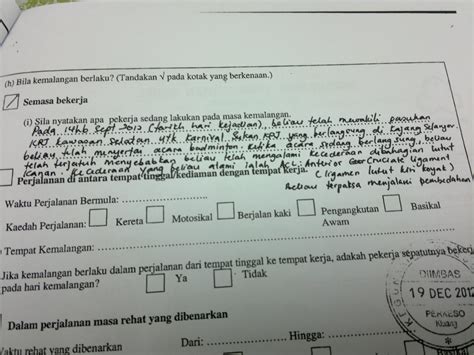 (h) Bila kemalangan berlaku? (Tandakan √ pada kotak yang berkenaan.)
Semasa bekerja
(i) Sila nyatakan apa pekerja sedang lakukan pada masa kemalangan.
Pada 14hb Sept 2012 (tarikh hari kejadian), beliau telah mewakili pasukan
kawasan Selatan utk Karnival Sukan yang berlangsung di Kajang Selangor
beliau telah menyertai acara badminton. Ketika acara sedang berlangsung, beliau
telah terjatuh menyebabkan beliau telah mengalami kecederaan dibahagian lutut
kanan. Kecederaan yang beliau alami ialah ACL: Anterior Cruciate Ligament
(ligamen lutut kiri koyak)
Perjalanan di antara tempat tinggal/kediaman dengan tempat kerja.
Beliau terpaksa menjalani pembedahan
Waktu Perjalanan Bermula:
Kaedah Perjalanan: Kereta Motosikal Berjalan kaki Pengangkutan Awam Basikal
Tempat Kemalangan:
Jika kemalangan berlaku dalam perjalanan dari tempat tinggal ke tempat kerja, adakah pekerja sepatutnya bekerja
pada hari kemalangan? Ya Tidak
DIIMBAS
19 DEC 2012
PERKESO
Dalam perjalanan masa rehat yang dibenarkan
Waktu rehat yang dibenarkan Dari: Hingga: